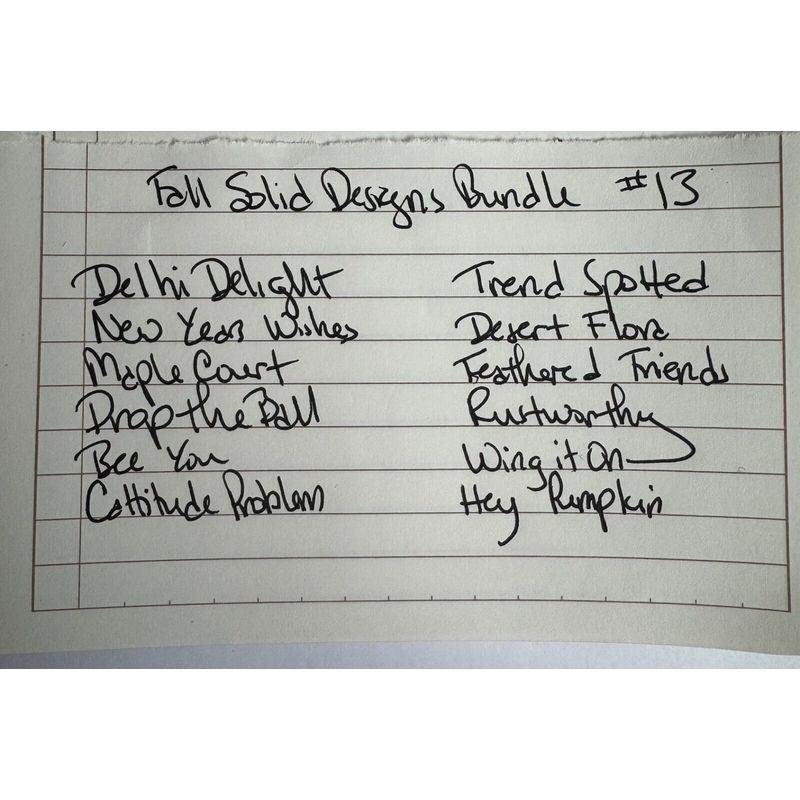 Fall Solid Designs Bundle #13
Delhi Delight
New Years Wishes
Maple Court
Drop the Ball
Bee You
Cattitude Problem
Trend Spotted
Desert Flora
Feathered Friends
Rustworthy
Wing it On
Hey Pumpkin